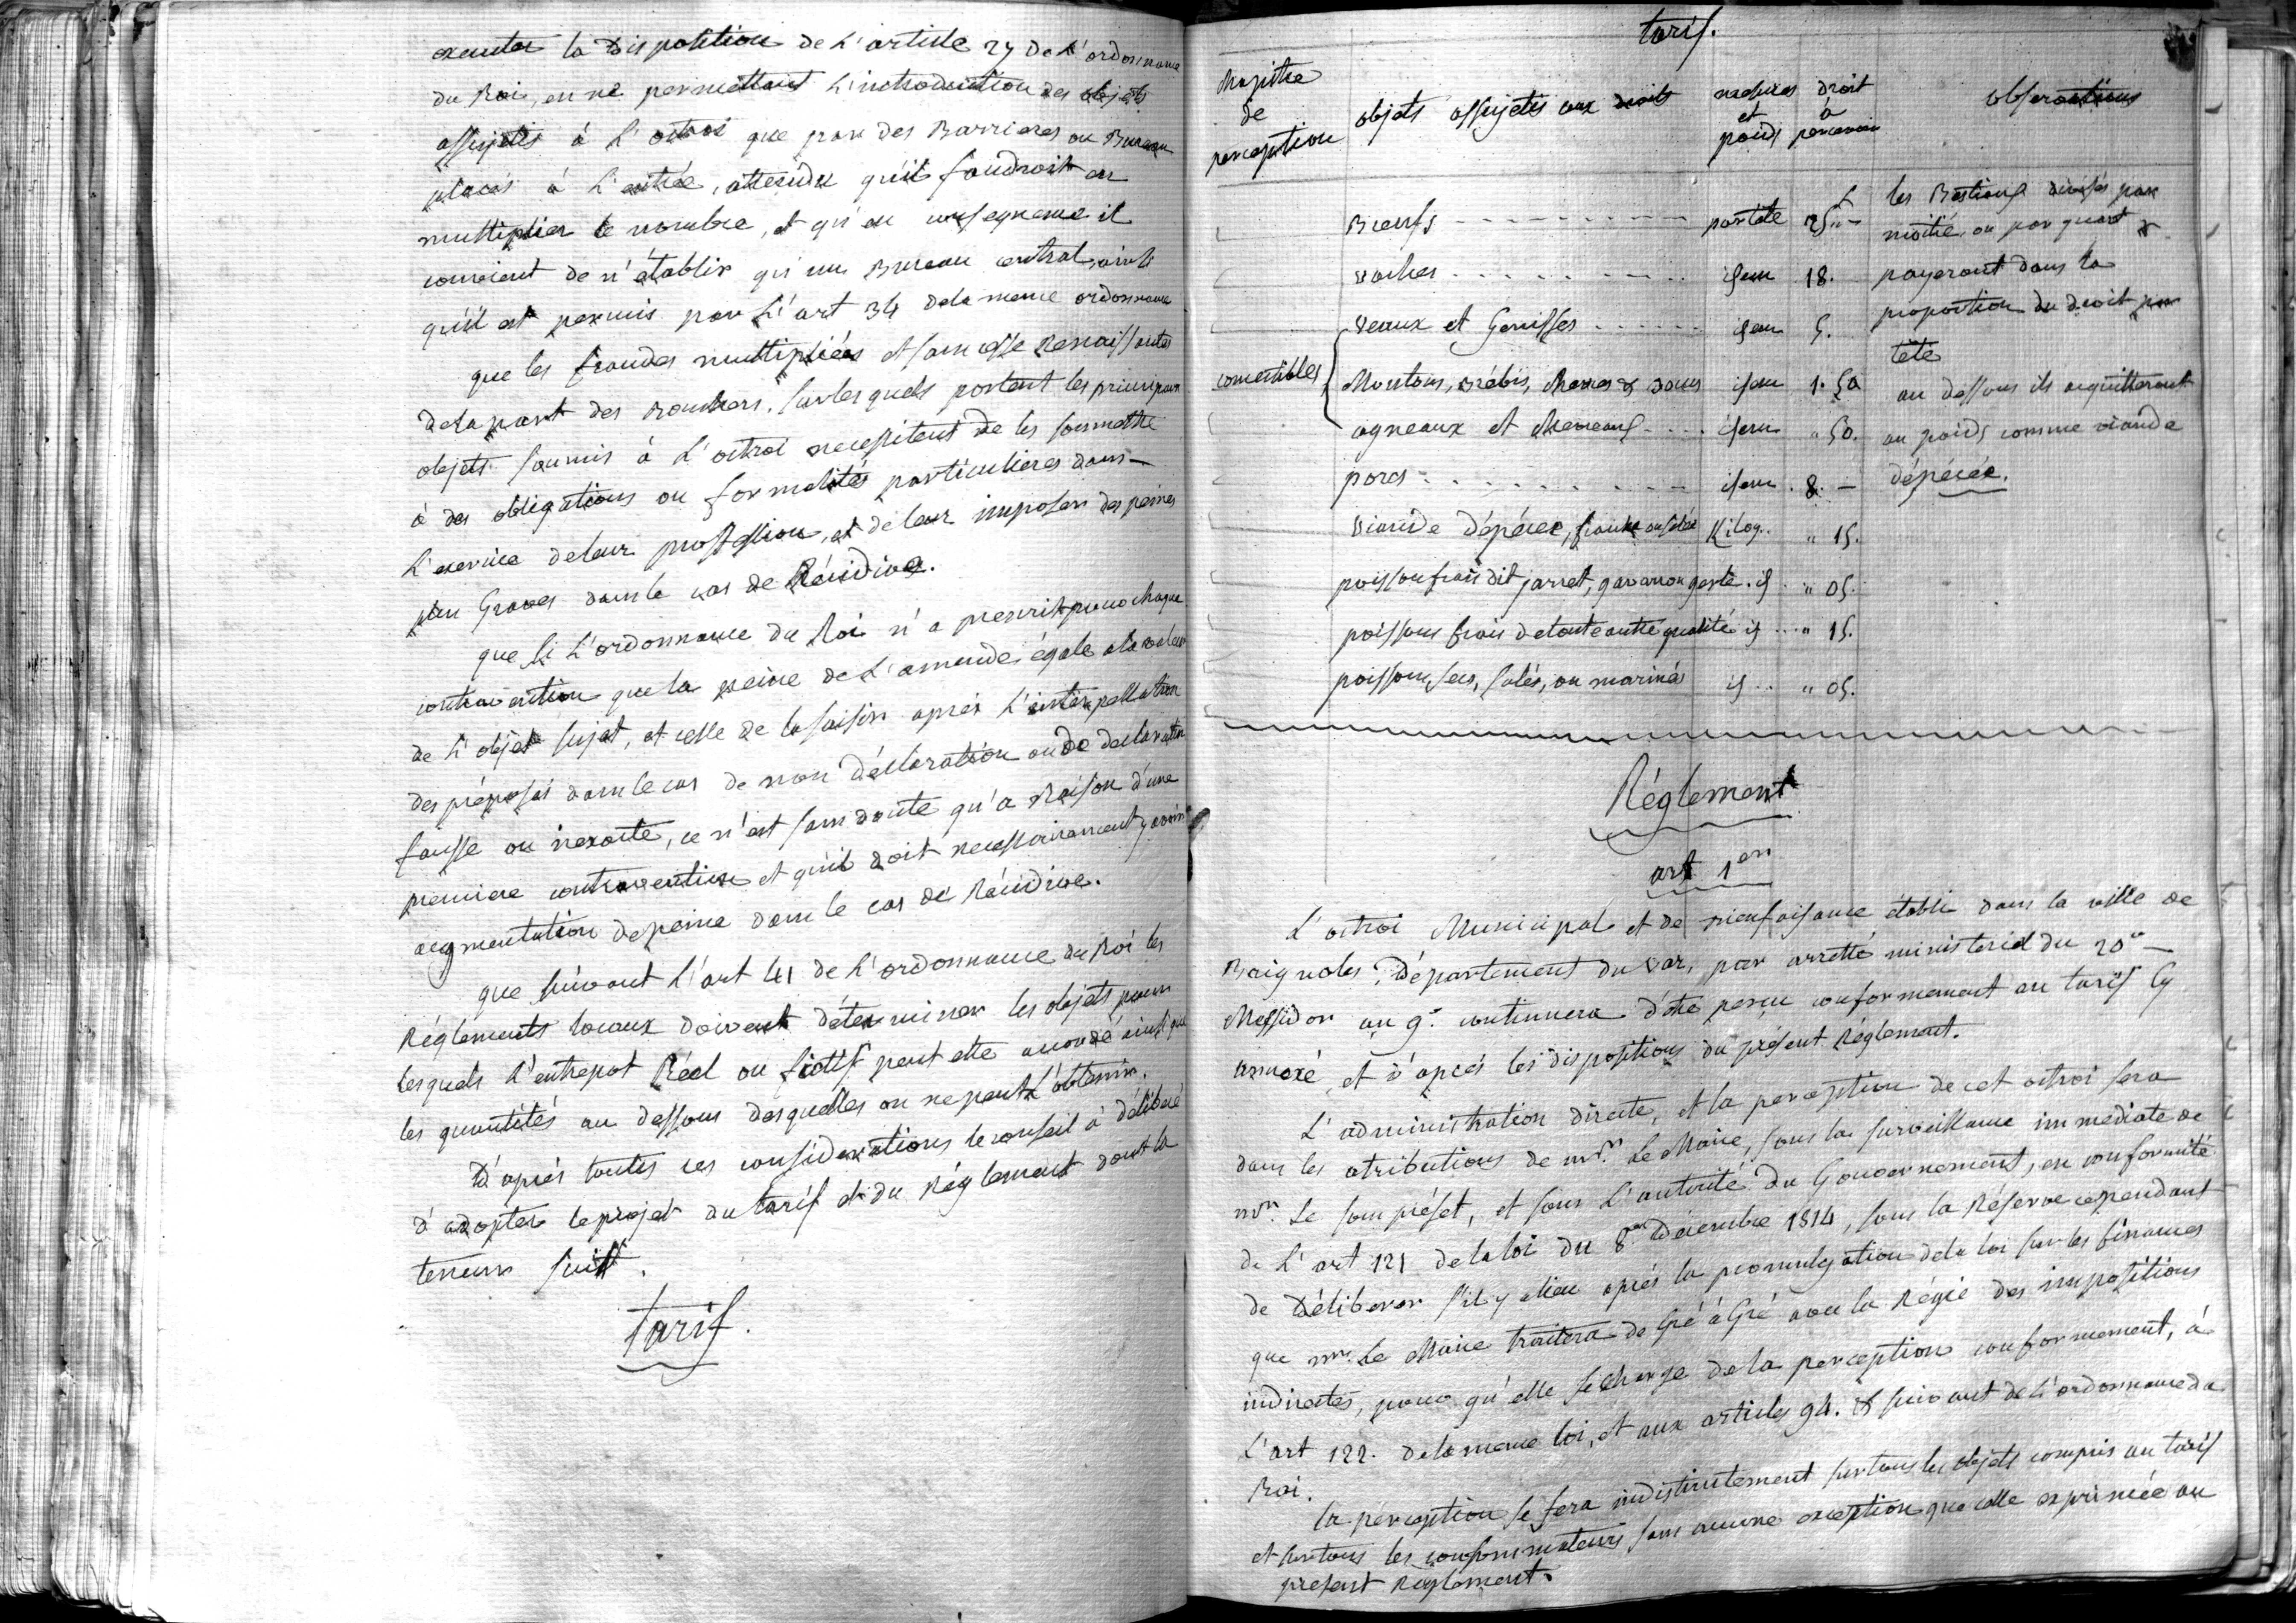 executer la Disposition de L'article 27 De L'ordonnance
du Roi, en ne permettant L'introduction des objets
assujetis à L'octroi que par des Barrieres ou Bureaux
placés à L'entrée, attendu qu'il faudroit en
multiplier le nombre, et qu'en consequence il
convient de n'établir qu'un Bureau central, ainsi
qu'il est permis par L'art 34 dela meme ordonnance
que les fraudes multipliées et sans cesse Renaissantes
dela part des Bouchers, sur lesquels portent les principaux
objets soumis à L'octroi necessitent de les soumettre
à des obligations ou formalités particulieres dans
L'exercice deleur profession, et deleur imposer des peines
plus Graves dans le cas de Récidive.
que si L'ordonnance du Roi n'a prescrit pour chaque
contravention que la peine de L'amende égale ala valeur
de L'objet sujet, et celle de la saisie après L'interpellation
des préposés dans le cas de non déclaration ou de declaration
fausse ou inexacte, ce n'est sans doute qu'a Raison d'une
premiere contravention et qu'il doit necessairement y avoir
augmentation depeine dans le cas de Récidive.
que suivant L'art 41 de L'ordonnance du Roi les
Réglements locaux doivent déterminer les objets pour
lesquels L'entrepot Réel ou fictif peut etre accordé ainsi que
les quantités au dessous desquelles on ne peut L'obtenir.
D'après toutes ces considerations le conseil à déliberé
d'adopter le projet du tarif et du Réglement dont la
teneur suit.
tarif.
tarif.
chapitre
de
perception
objets assujetis aux droits
mesures
et
poids
droit
à
percevoir
observations
Bœufs par tête 25 "
vaches idem 18.
veaux et Genisses idem 5.
comestibles
Moutons, Brébis, chevres & Boucs idem 1. 50
agneaux et chevreaux idem " 50.
porcs idem 8. —
viande dépécée, fraiche ou salée Kilog. " 15.
poisson frais dit jarret, gavaron id " 05.
poissons frais detoute autre qualité id " 15.
poissons, secs, salés, ou marinés id " 05.
les Bestiaux divisés par
moitié, ou par quart
payeront dans la
proportion du droit par
tête
au dessous ils acquitteront
au poids comme viande
dépécée.
Réglement
art 1er
L'octroi Municipal et de Bienfaisance établi dans la ville de
Brignoles, Département du var, par arretté ministeriel du 20
Messidor an 9. continuera d'etre perçu conformement au tarif Cy
annexé, et d'après les dispositions du présent Réglement.
L'administration directe, et la perception de cet octroi sera
dans les atributions de mr. Le Maire, sous la surveillance immediate de
mr. Le sous préfet, et sous L'autorité du Gouvernement, en conformité
de L'art 121 dela loi du 8 Décembre 1814, sous la Réserve cependant
de Déliberer s'il y a lieu après la promulgation dela loi sur les finances
que mr. Le Maire traitera de Gré à Gré avec la Régie des impositions
indirectes, pour qu'elle se charge de la perception conformement, à
L'art 122. dela meme loi, et aux articles 94. & suivant de L'ordonnance du
Roi.
La perception se fera indistinctement sur tous les objets compris au tarif
et sur tous les consommateurs sans aucune exception que celle exprimée au
présent Réglement.